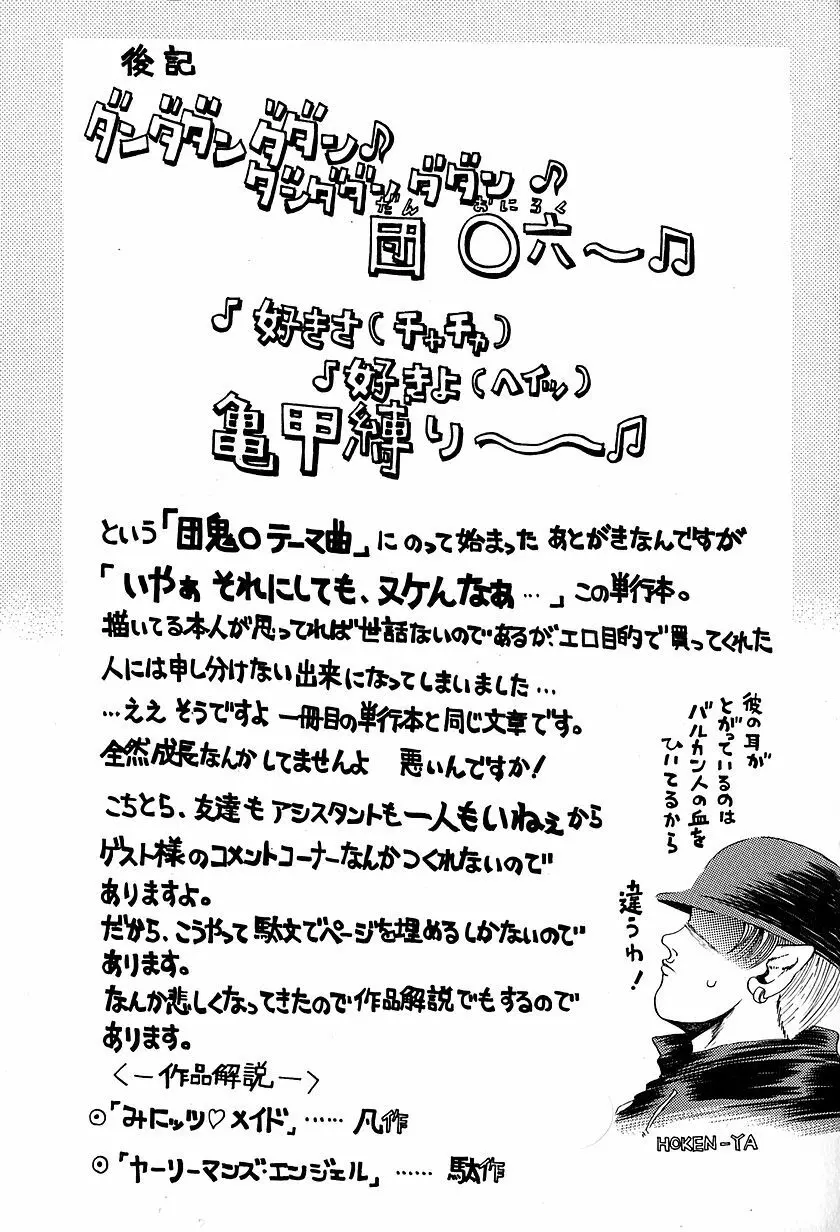 後記
ダンダダンダダン♪
ダンダダンダダン♪
だん おにろく
団〇六〜♫
♪好きさ(チャチャ)
♪好きよ(ヘイッ)
亀甲縛り〜♫
という「団鬼〇テーマ曲」にのって始まったあとがきなんですが
「いやぁ それにしても、ヌケんなぁ…」この単行本。
描いてる本人が思ってれば世話ないのであるが、エロ目的で買ってくれた
人には申し分けない出来になってしまいました…
…ええ そうですよ 一冊目の単行本と同じ文章です。
全然成長なんかしてませんよ 悪いんですか!
こちとら、友達もアシスタントも一人もいねぇから
ゲスト様のコメントコーナーなんかつくれないので
ありますよ。
だから、こうやって駄文でページを埋めるしかないので
あります。
なんか悲しくなってきたので作品解説でもするので
あります。
〈－作品解説－〉
◉「みにッツ♡メイド」……凡作
◉「ヤーリーマンズ・エンジェル」……駄作
彼の耳が
とがっているのは
バルカン人の血を
ひいてるから
違うわ!
HOKEN-YA